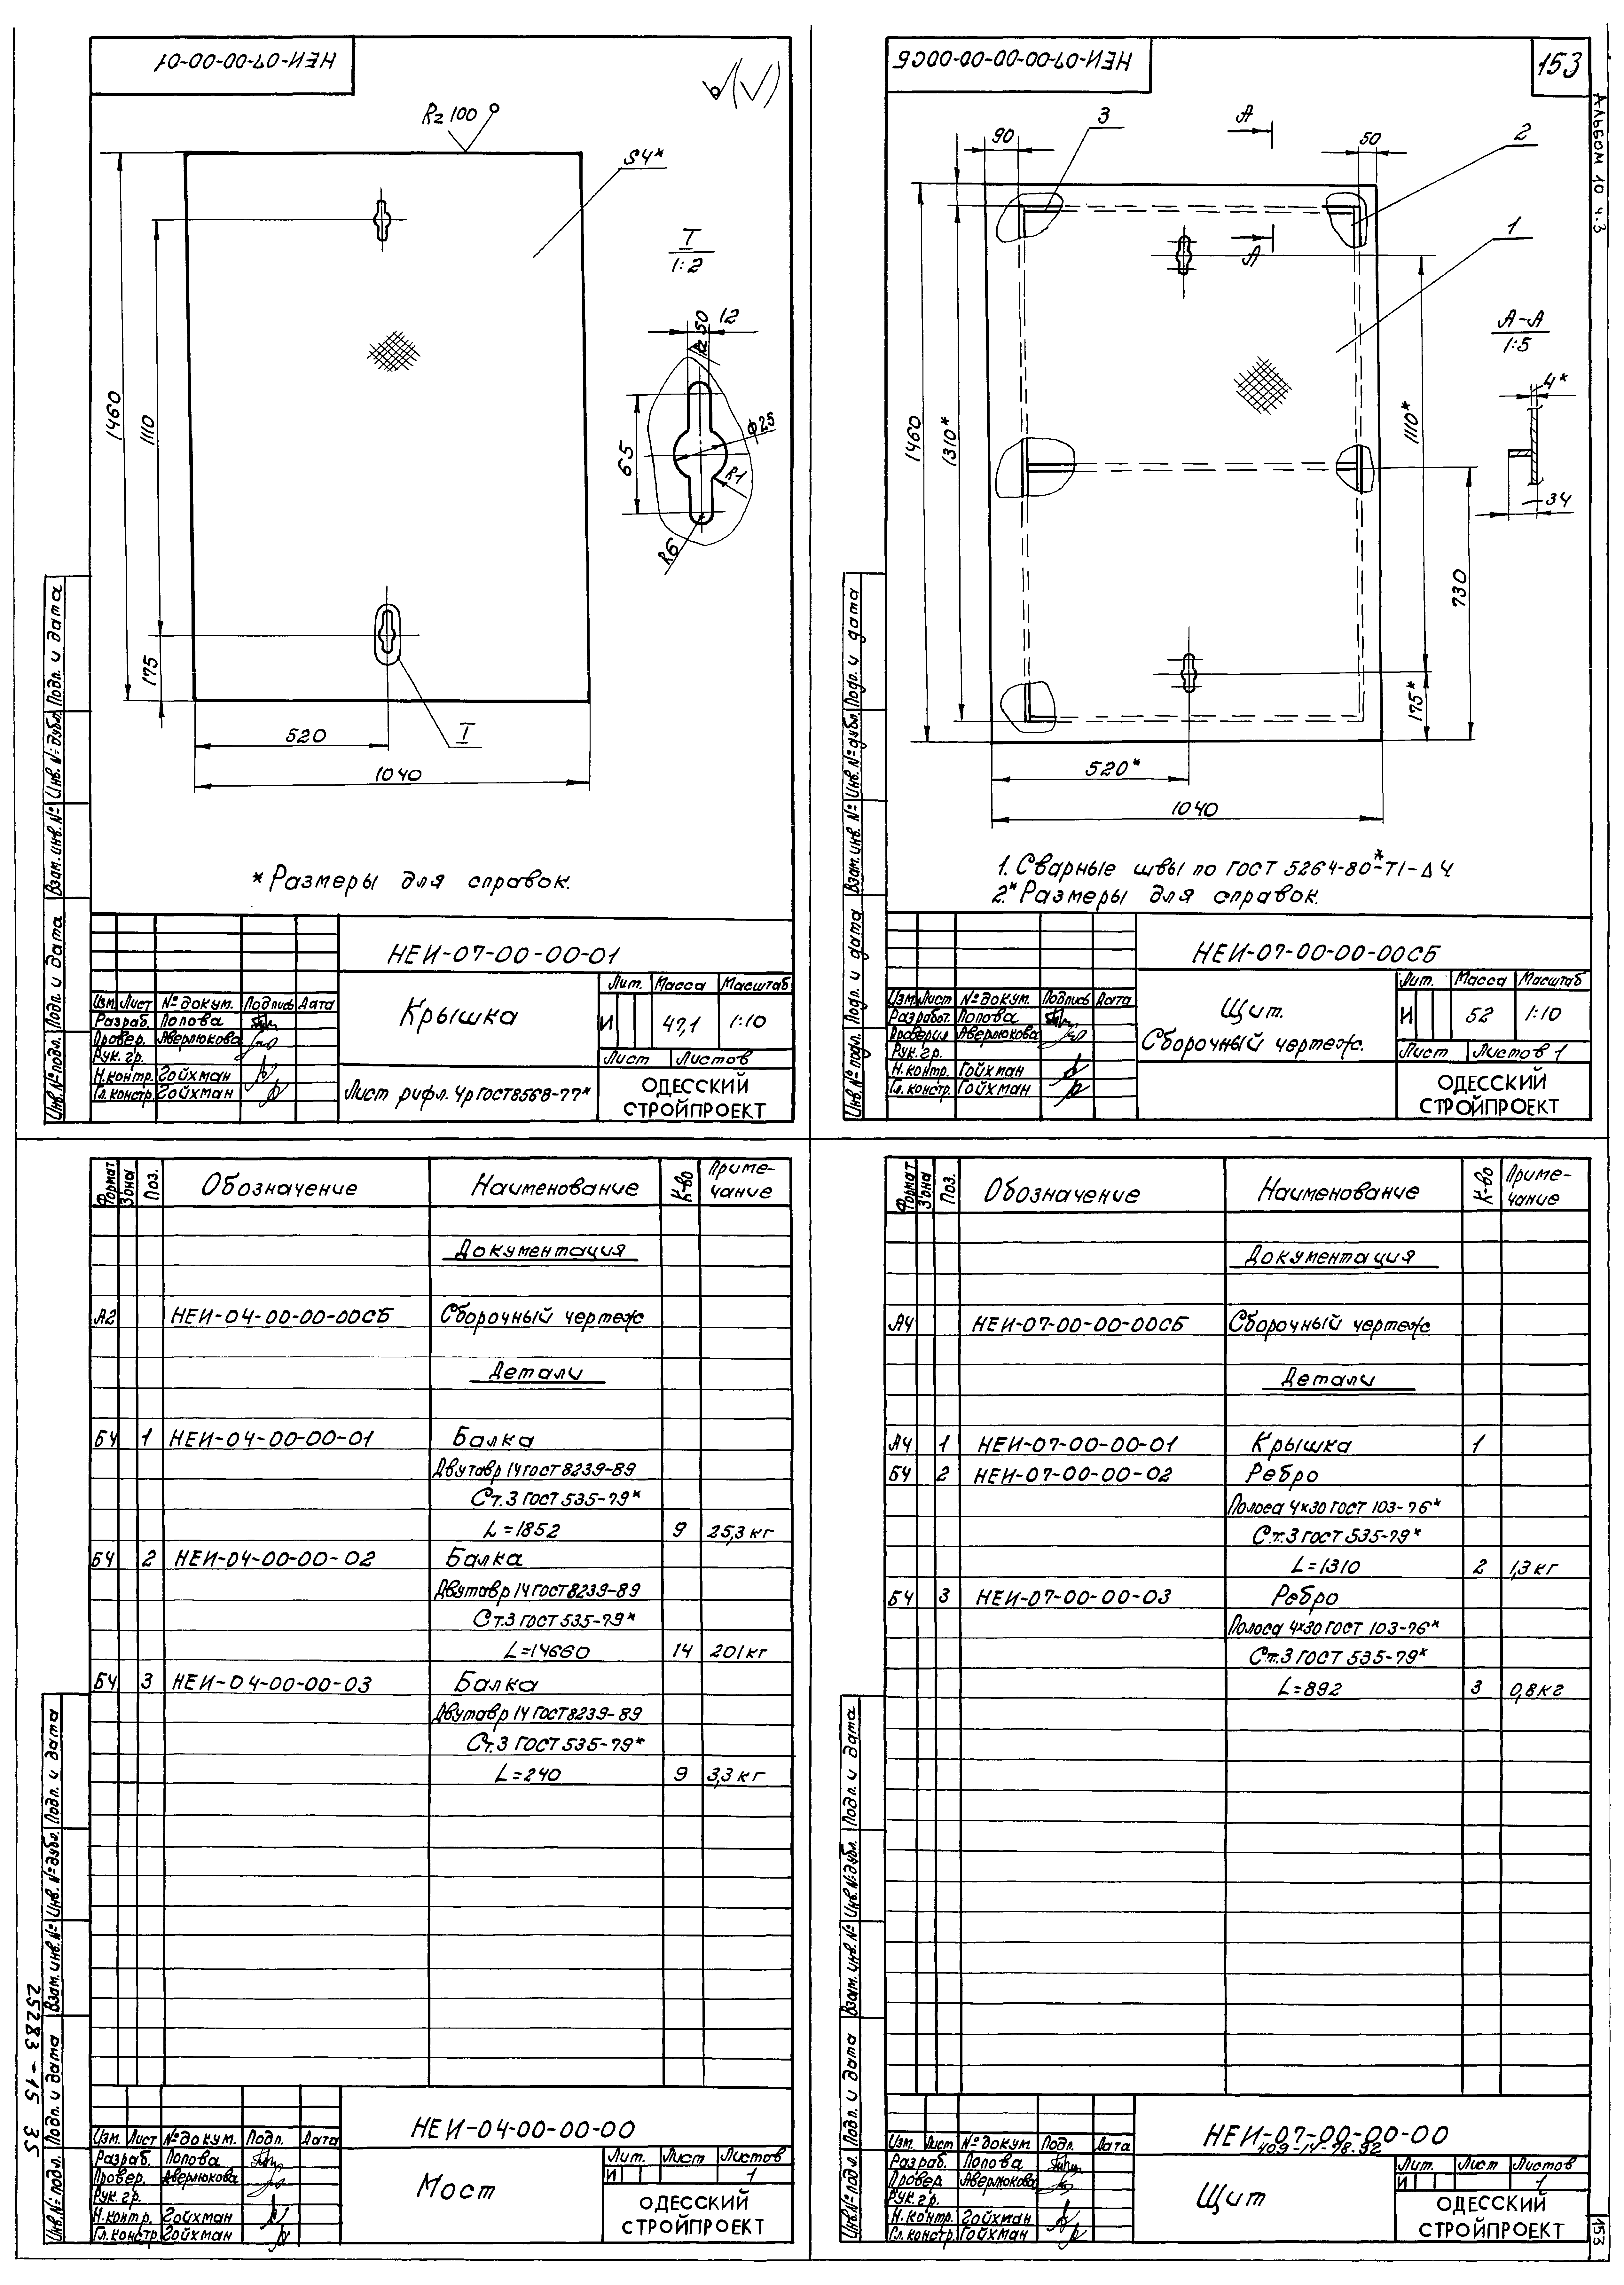 НЕИ-07-00-00-01
Rz 100
S4*
I
1:2
12
Rz 50
ϕ25
65
R1
R6
1460
1110
175
I
520
1040
* Размеры для справок.
НЕИ-07-00-00-01
Изм. Лист № докум. Подпись Дата
Разраб. Попова
Провер. Аверлюкова
Рук. гр.
Н.контр. Гойхман
Гл.констр. Гойхман
Крышка
Лит. Масса Масштаб
И 47,1 1:10
Лист Листов
Лист рифл. 4р ГОСТ 8568-77*
ОДЕССКИЙ
СТРОЙПРОЕКТ
Инв.№ подл. Подп. и дата Взам.инв.№ Инв.№ дубл. Подп. и дата
НЕИ-07-00-00-00СБ
153
Альбом 10 ч.3
90
3
А
50
2
1
А
А-А
1:5
4*
34
1460
1310*
1110*
730
175*
520*
1040
1. Сварные швы по ГОСТ 5264-80*-Т1-Δ4.
2.* Размеры для справок.
НЕИ-07-00-00-00СБ
Изм. Лист № докум. Подпись Дата
Разработ. Попова
Проверил Аверлюкова
Рук. гр.
Н.контр. Гойхман
Гл.констр. Гойхман
Щит.
Сборочный чертеж.
Лит. Масса Масштаб
И 52 1:10
Лист Листов 1
ОДЕССКИЙ
СТРОЙПРОЕКТ
Инв.№ подл. Подп. и дата Взам.инв.№ Инв.№ дубл. Подп. и дата
Формат Зона Поз. Обозначение Наименование К-во Приме-
чание
Документация
А2 НЕИ-04-00-00-00СБ Сборочный чертеж
Детали
БЧ 1 НЕИ-04-00-00-01 Балка
Двутавр 14 ГОСТ 8239-89
Ст.3 ГОСТ 535-79*
L=1852 9 25,3 кг
БЧ 2 НЕИ-04-00-00-02 Балка
Двутавр 14 ГОСТ 8239-89
Ст.3 ГОСТ 535-79*
L=14660 14 201 кг
БЧ 3 НЕИ-04-00-00-03 Балка
Двутавр 14 ГОСТ 8239-89
Ст.3 ГОСТ 535-79*
L=240 9 3,3 кг
НЕИ-04-00-00-00
Изм. Лист № докум. Подп. Дата
Разраб. Попова
Провер. Аверлюкова
Рук. гр.
Н.контр. Гойхман
Гл.констр. Гойхман
Мост
Лит. Лист Листов
И 1
ОДЕССКИЙ
СТРОЙПРОЕКТ
Инв.№ подл. Подп. и дата Взам.инв.№ Инв.№ дубл. Подп. и дата
25283-15 35
Формат Зона Поз. Обозначение Наименование К-во Приме-
чание
Документация
А4 НЕИ-07-00-00-00СБ Сборочный чертеж
Детали
А4 1 НЕИ-07-00-00-01 Крышка 1
БЧ 2 НЕИ-07-00-00-02 Ребро
Полоса 4×30 ГОСТ 103-76*
Ст.3 ГОСТ 535-79*
L=1310 2 1,3 кг
БЧ 3 НЕИ-07-00-00-03 Ребро
Полоса 4×30 ГОСТ 103-76*
Ст.3 ГОСТ 535-79*
L=892 3 0,8 кг
НЕИ-07-00-00-00
409-14-78.92
Изм. Лист № докум. Подп. Дата
Разраб. Попова
Провер Аверлюкова
Рук. гр.
Н.контр. Гойхман
Гл.констр. Гойхман
Щит
Лит. Лист Листов
И 1
ОДЕССКИЙ
СТРОЙПРОЕКТ
Инв.№ подл. Подп. и дата Взам.инв.№ Инв.№ дубл. Подп. и дата
153